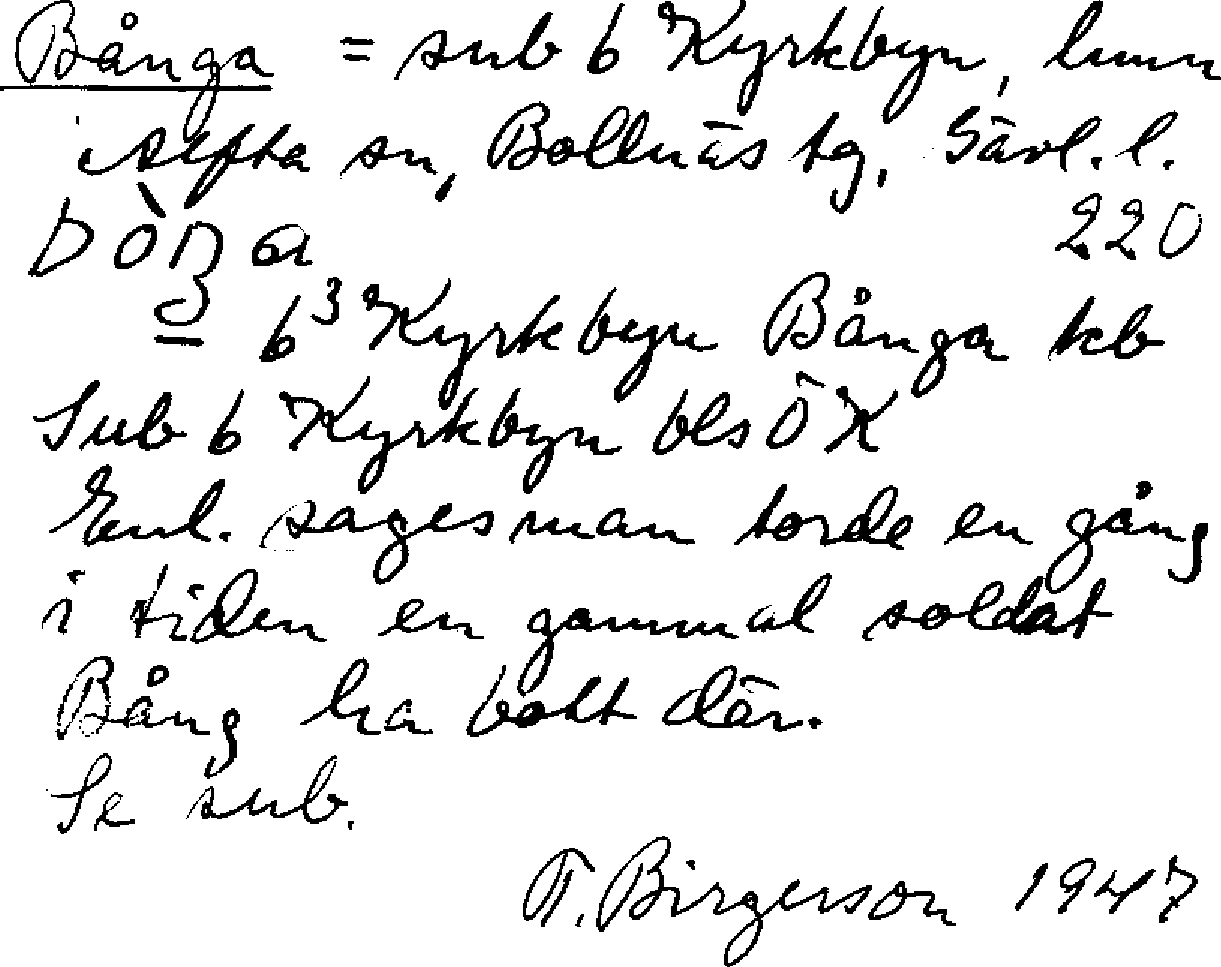 Bånga = sub 6 Kyrkbyn, hmn
i Alfta sn, Bollnäs tg, Gävl. l.
bòŋa 220
= 6³ Kyrkbyn Bånga kb
Sub 6 Kyrkbyn bls ÖK
Enl. sagesman torde en gång
i tiden en gammal soldat
Bång ha bott där.
Se sub.
T. Birgerson 1947